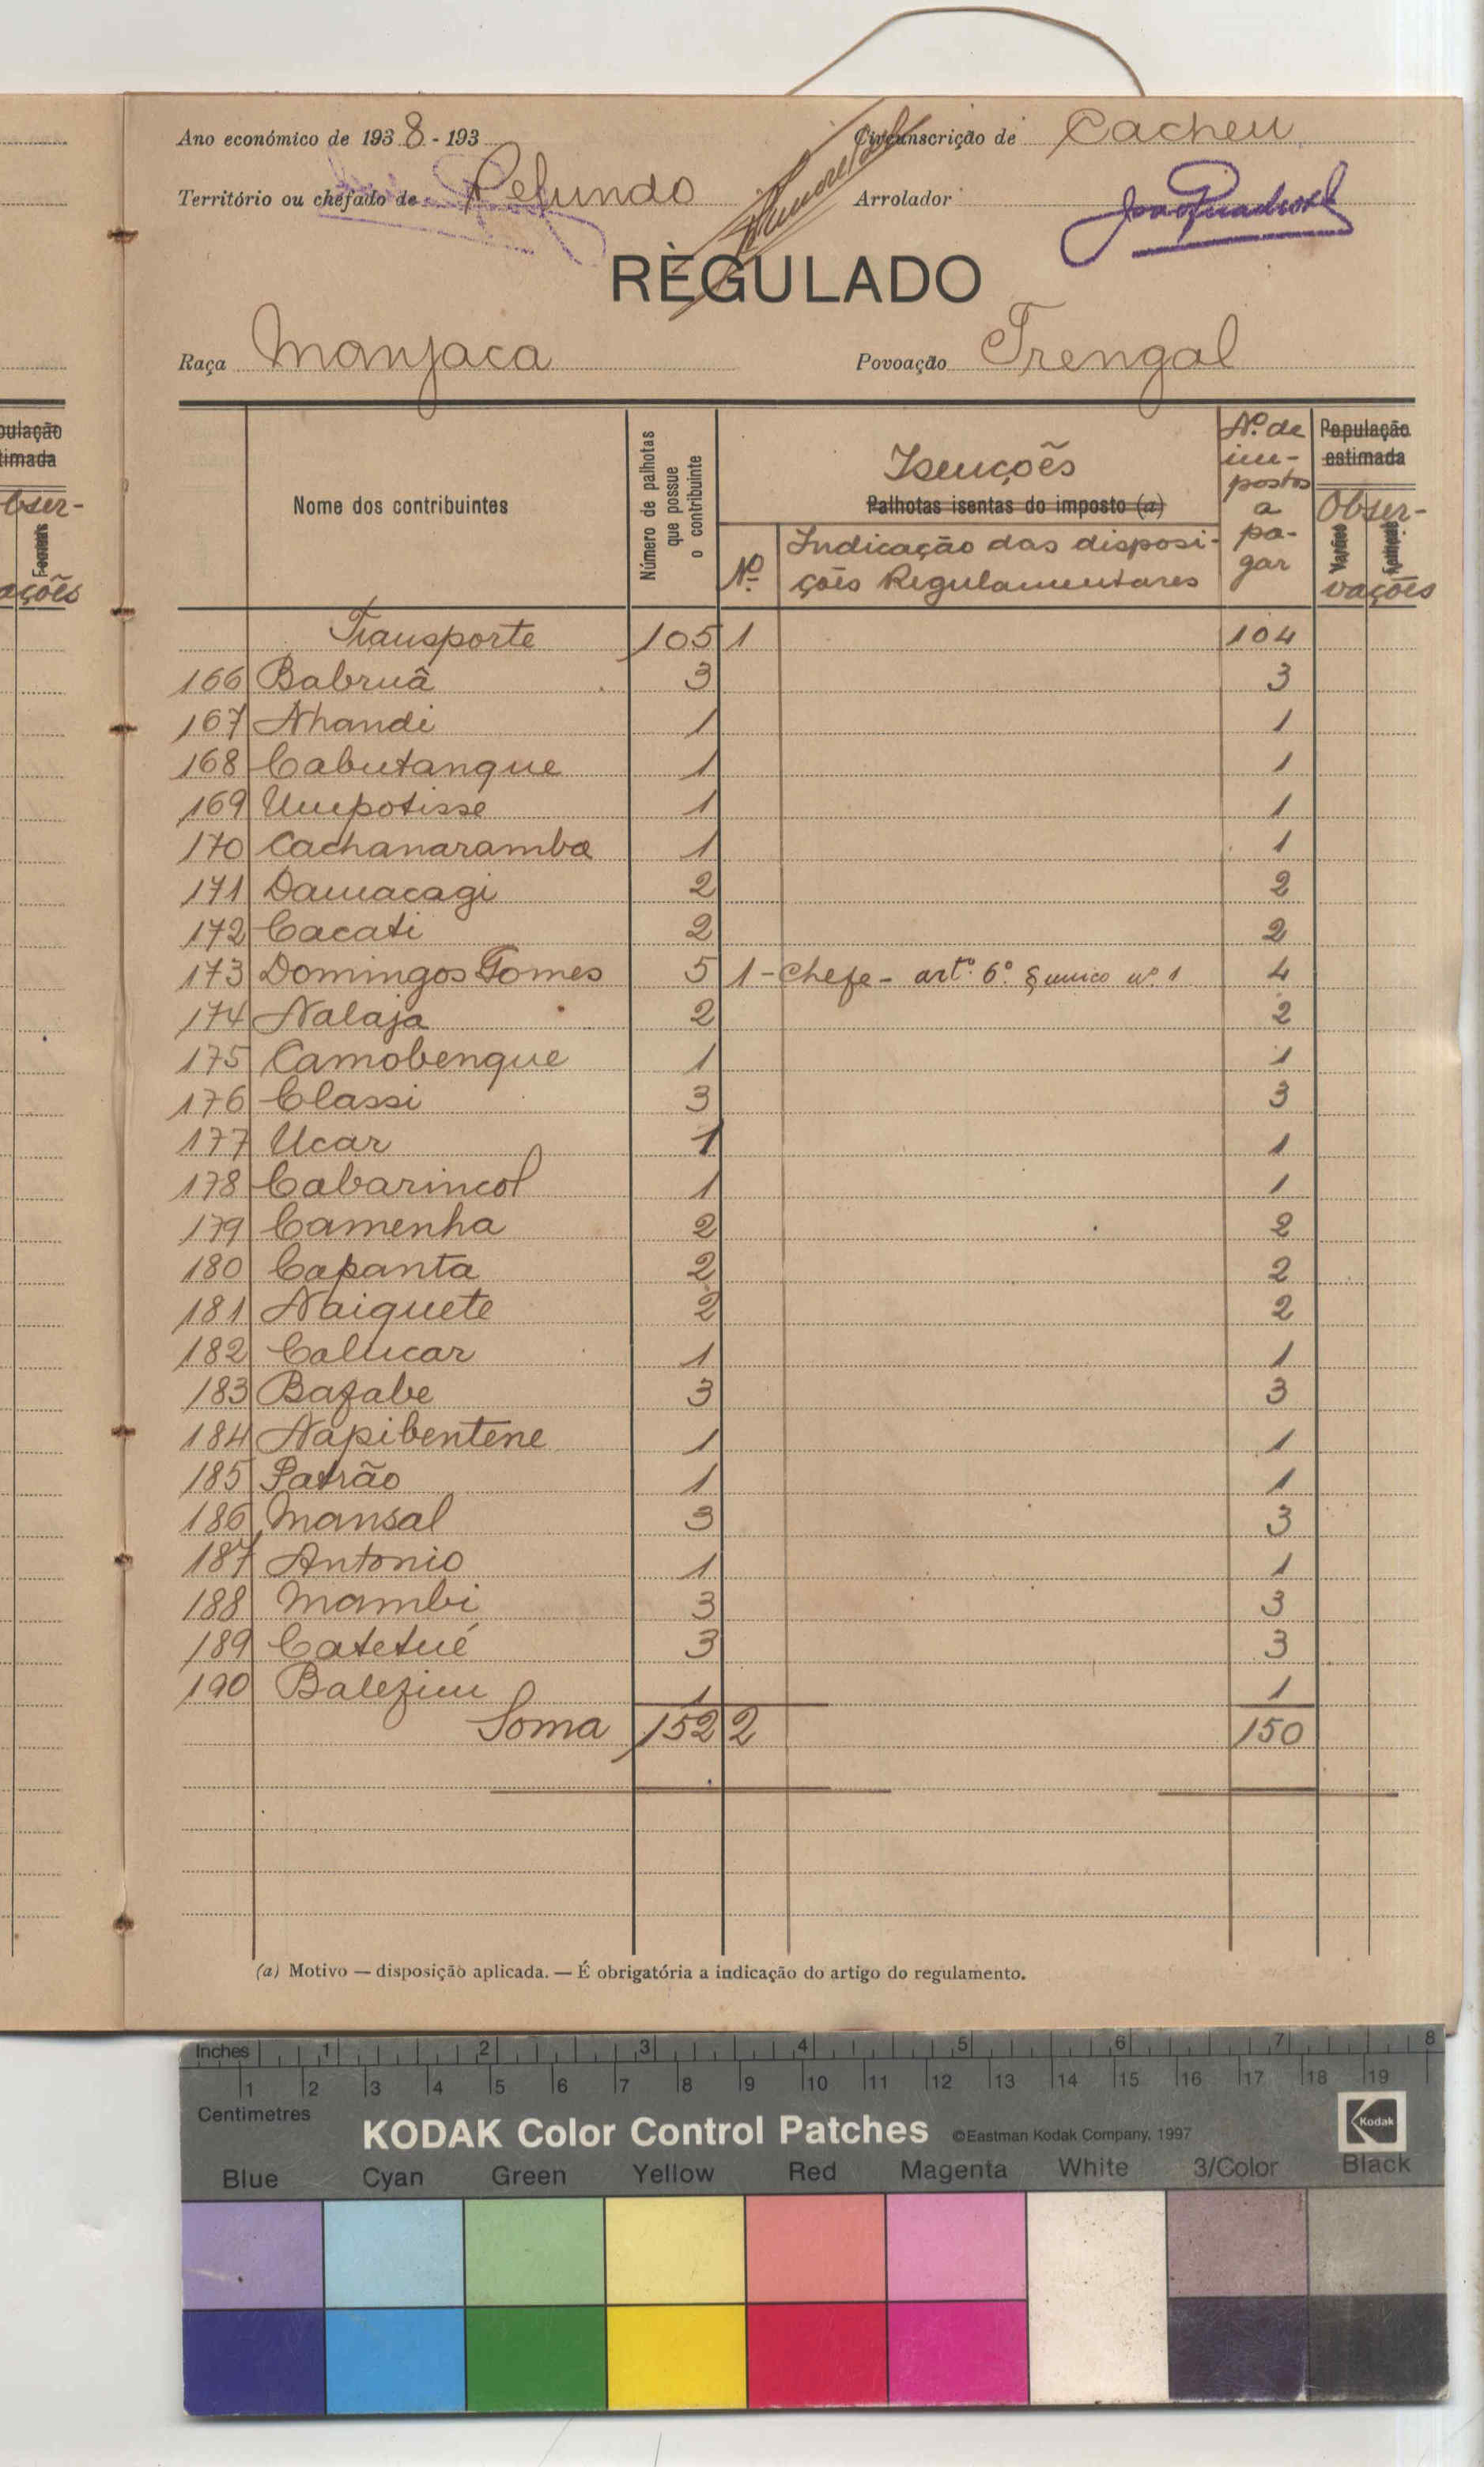 Ano económico de 1938-193
Circunscrição de Cacheu
Território ou chefado de Pefundo
Arrolador
REGULADO
Raça Manjaca
Povoação Trengal
Nome dos contribuintes
Número de palhotas que possue o contribuinte
Isenções
Palhotas isentas do imposto (a)
Nº
Indicação das disposi-
ções Regulamentares
Nº. de
im-
postos
a
pa-
gar
População
estimada
Obser-
vações
pulação
timada
bser-
ações
Transporte 105 1 104
166 Babruâ 3 3
167 Nhandi 1 1
168 Cabutanque 1 1
169 Umpotisse 1 1
170 Cachanaramba 1 1
171 Damacagi 2 2
172 Cacati 2 2
173 Domingos Gomes 5 1 - Chefe - artº. 6º § unico nº. 1 4
174 Nalaja 2 2
175 Camobenque 1 1
176 Classi 3 3
177 Ucar 1 1
178 Cabarincol 1 1
179 Camenha 2 2
180 Capanta 2 2
181 Naiquete 2 2
182 Calucar 1 1
183 Bafabe 3 3
184 Napibentene 1 1
185 Patrão 1 1
186 Mansal 3 3
187 Antonio 1 1
188 Mambi 3 3
189 Catetué 3 3
190 Balezim 1 1
Soma 152 2 150
(a) Motivo — disposição aplicada. — É obrigatória a indicação do artigo do regulamento.
Inches 1 2 3 4 5 6 7 8
1 2 3 4 5 6 7 8 9 10 11 12 13 14 15 16 17 18 19
Centimetres
KODAK Color Control Patches ©Eastman Kodak Company, 1997 Kodak
Blue Cyan Green Yellow Red Magenta White 3/Color Black